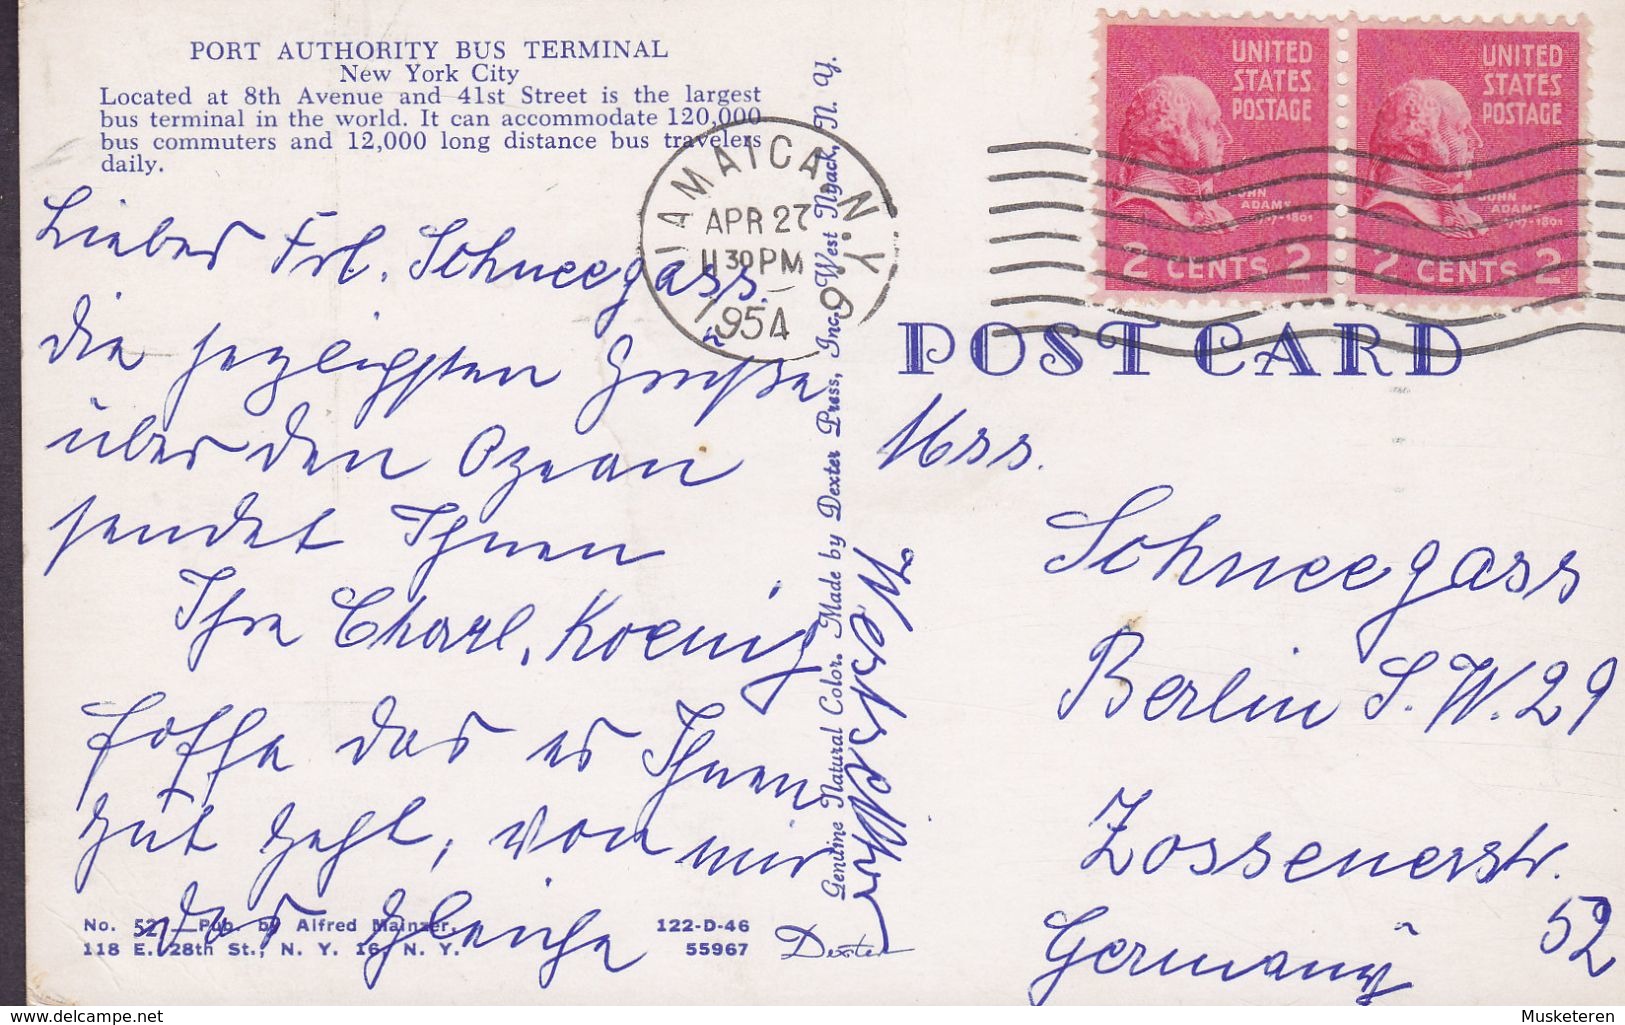 PORT AUTHORITY BUS TERMINAL
New York City
Located at 8th Avenue and 41st Street is the largest
bus terminal in the world. It can accommodate 120,000
bus commuters and 12,000 long distance bus travelers
daily.
Liebes Frl. Schneegass.
die herzlichsten Grüße
über den Ozean
sendet Ihnen
Ihre Charl. Koenig
hoffe das es Ihnen
gut geht, von mir
das gleiche
No. 52 —Pub. by Alfred Mainzer.
118 E. 28th St., N. Y. 16, N. Y.
122-D-46
55967
Dexter
Genuine Natural Color. Made by Dexter Press, Inc., West Nyack, N. Y.
JAMAICA N.Y.
APR 27
11 30 PM
1954
UNITED
STATES
POSTAGE
JOHN
ADAMS
1797-1801
2 CENTS 2
UNITED
STATES
POSTAGE
JOHN
ADAMS
1797-1801
2 CENTS 2
POST CARD
Mss.
Schneegass
Berlin S.W. 29
Zossenerstr.
52
Germany
www.delcampe.net
Musketeren